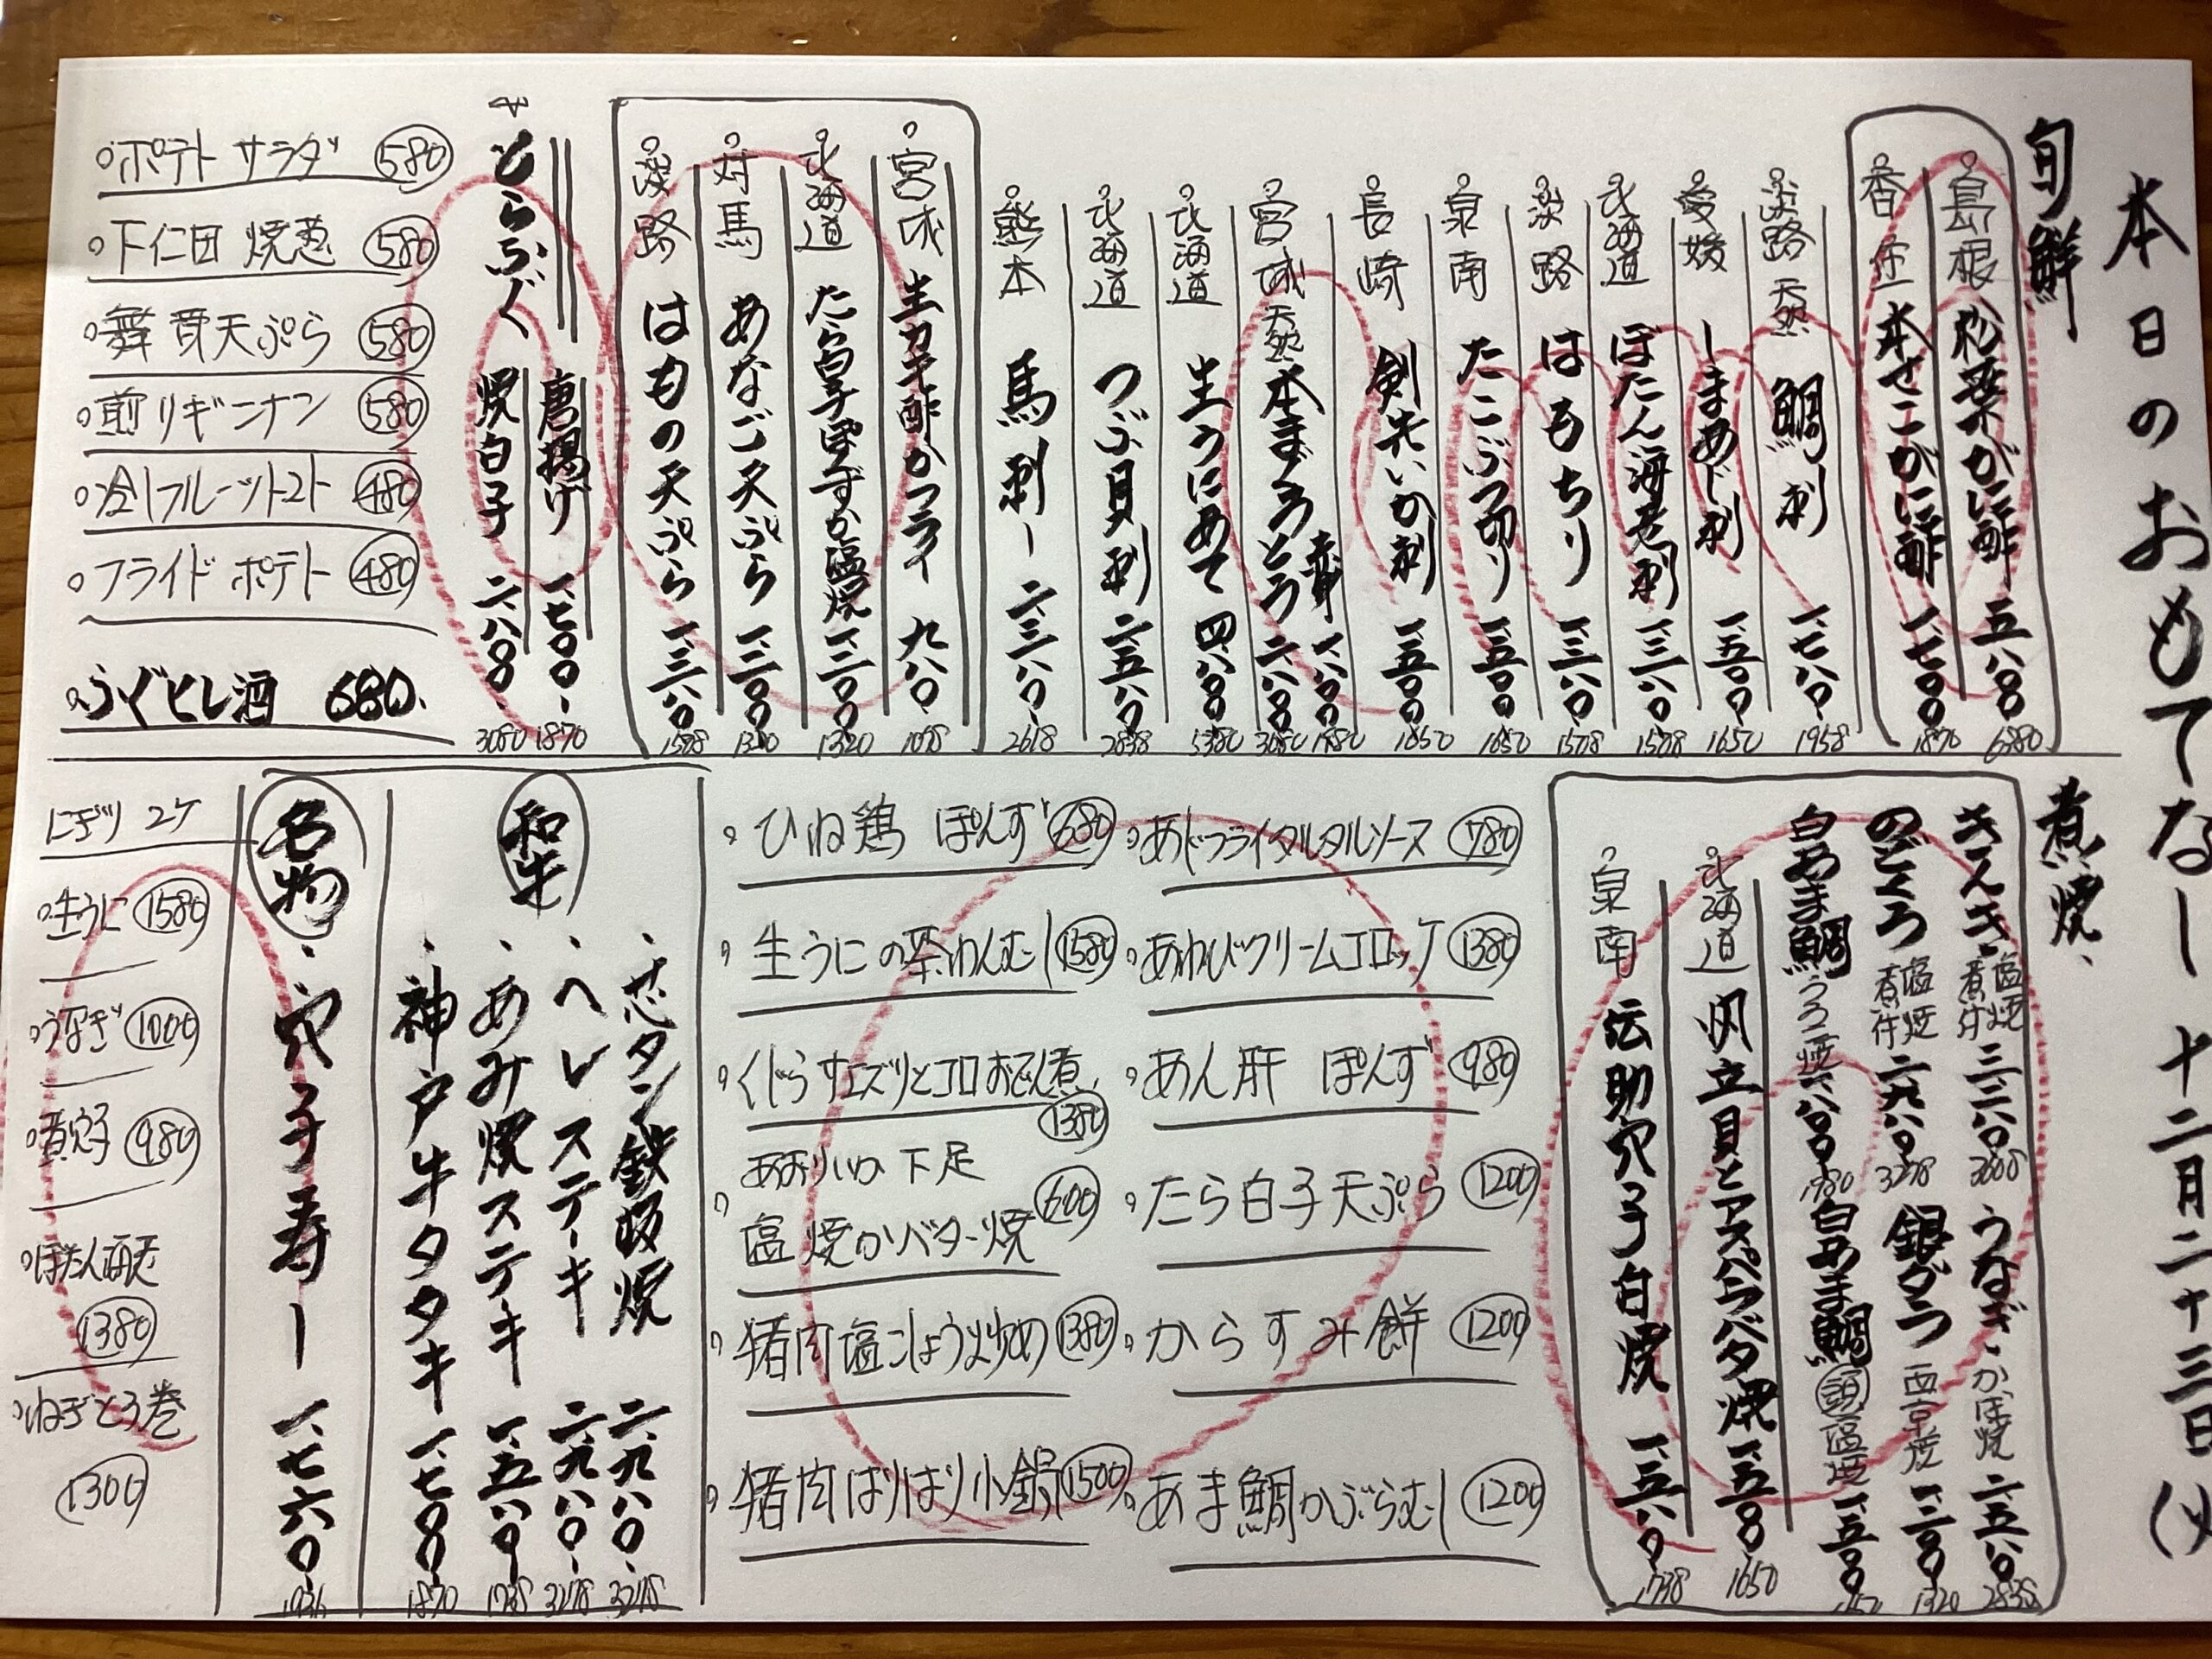 本日のおもてなし 十二月二十三日(火
旬鮮
島根 松葉がに酢 五、八〇〇 6380
香住 本せこがに酢 一、七〇〇 1870
淡路 天然 鯛刺 一、七八〇 1958
愛媛 しまあじ刺 一、五〇〇 1650
北海道 ぼたん海老刺 一、三八〇 1518
淡路 はもちり 一、三八〇 1518
泉南 たこぶつ切り 一、五〇〇 1650
長崎 剣先いか刺 一、五〇〇 1650
宮城 天然 本まぐろ 赤身 一、八〇〇 1980
とろ 二、八〇〇 3080
北海道 生うにあて 四、八〇〇 5280
北海道 つぶ貝刺 二、五八〇 2838
熊本 馬刺し 二、三八〇 2618
宮城 生カキ酢かフライ 九八〇 1078
北海道 たら白子ぽんずか塩焼 一、二〇〇 1320
対馬 あなご天ぷら 一、二〇〇 1320
淡路 はもの天ぷら 一、三八〇 1518
とらふぐ
唐揚げ 一、七〇〇 1870
焼白子 二、八〇〇 3080
ポテトサラダ 580
下仁田 焼葱 580
舞茸天ぷら 580
煎りギンナン 580
冷しフルーツトマト 480
フライドポテト 480
ふぐヒレ酒 680
煮焼
きんき 塩焼 煮付 三、二八〇 3608
うなぎ かば焼 二、五八〇 2838
のどぐろ 塩焼 煮付 二、九八〇 3278
銀ダラ 西京焼 一、二〇〇 1320
白あま鯛 うろこ焼 一、八〇〇 1980
白あま鯛 頭 塩焼 一、五〇〇 1650
北海道 帆立貝とアスパラバタ焼 一、五〇〇 1650
泉南 伝助穴子白焼 一、五八〇 1738
あじフライタルタルソース 780
あわびクリームコロッケ 1380
あん肝 ぽんず 980
たら白子天ぷら 1200
からすみ餅 1200
あま鯛かぶらむし 1200
ひね鶏 ぽんず 680
生うにの茶わんむし 1580
くじらサエズリとコロおでん煮 1380
あおりいか下足
塩焼かバター焼 600
猪肉塩こしょう炒め 1380
猪肉はりはり小鍋 1500
和牛
芯タン鉄板焼 二、九八〇 3278
ヘレステーキ 二、九八〇 3278
あみ焼ステーキ 一、五八〇 1738
神戸牛タタキ 一、七〇〇 1870
名物
穴子寿し 一、七六〇 1936
にぎり 2ケ
生うに 1580
うなぎ 1000
煮穴子 980
ぼたん海老 1380
ねぎとろ巻 1300